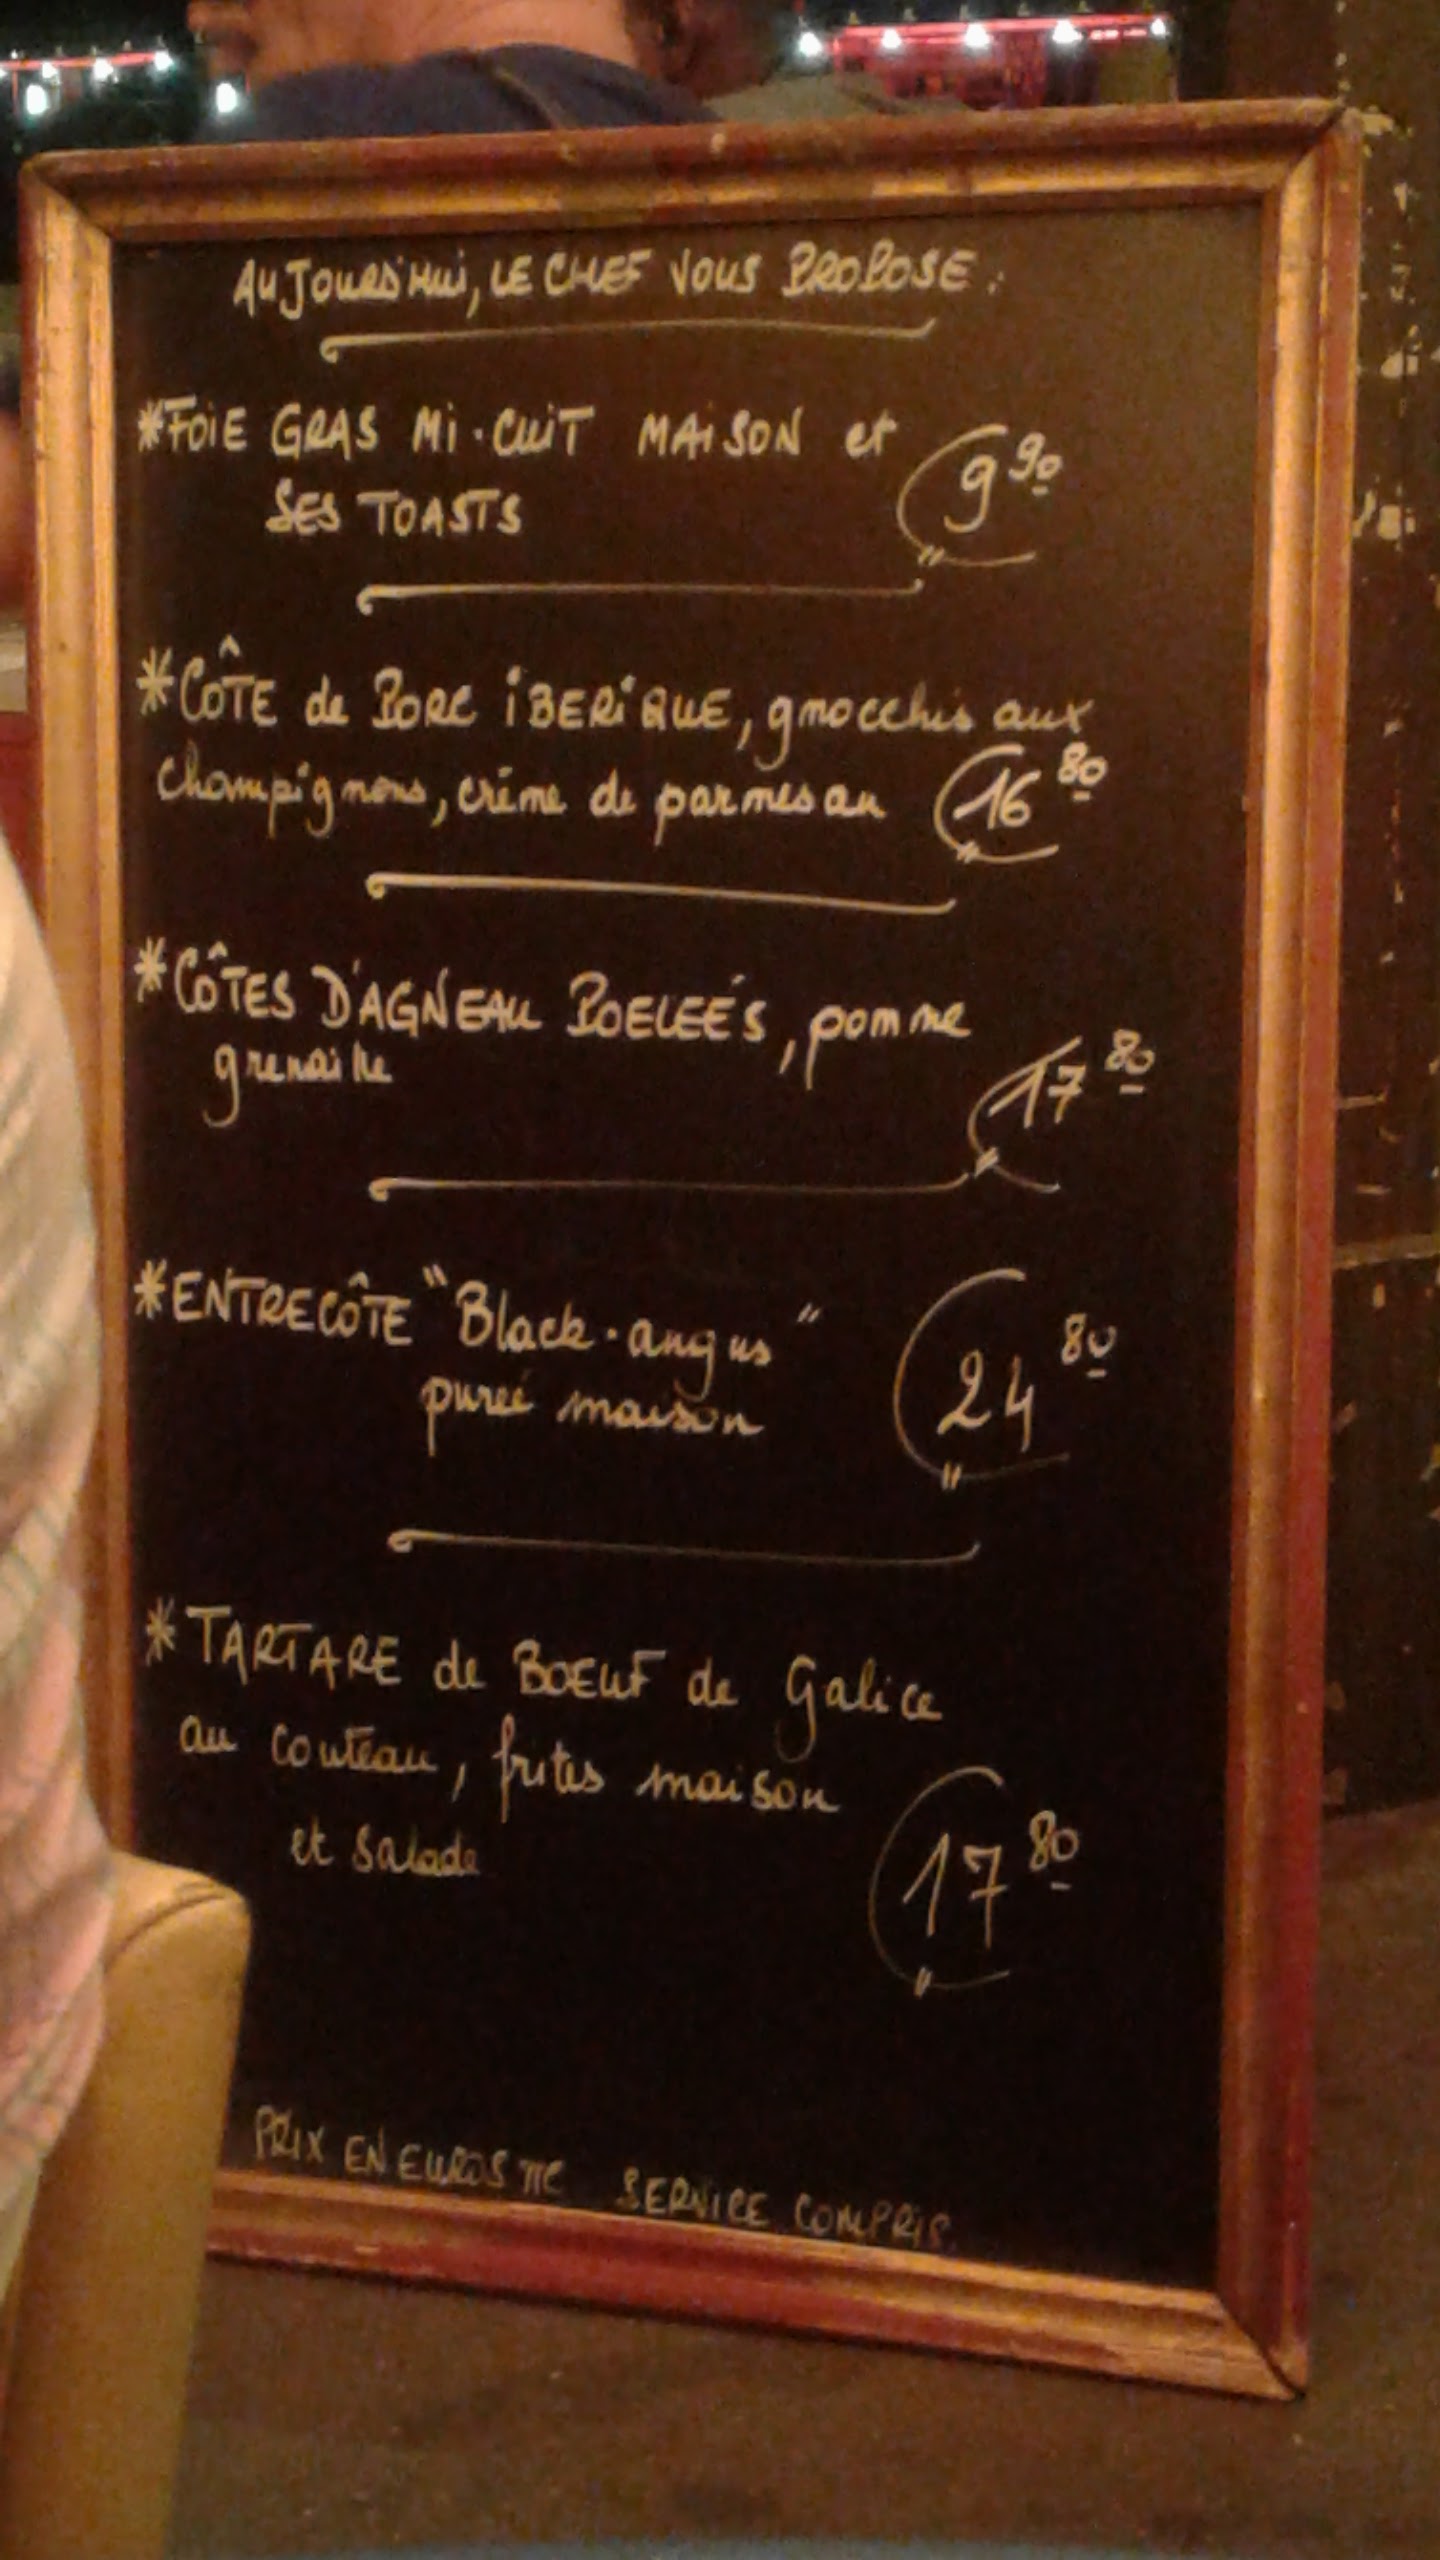 AUJOURD'HUI, LE CHEF VOUS PROPOSE :
*FOIE GRAS MI-CUIT MAISON et
SES TOASTS
9 90
*CÔTE de PORC IBERIQUE, gnocchis aux
champignons, crème de parmesan
16 80
*CÔTES D'AGNEAU POELEÉS, pomme
grenaille
17 80
*ENTRECÔTE "Black-angus"
pureé maison
24 80
*TARTARE de BOEUF de Galice
au couteau, frites maison
et salade
17 80
PRIX EN EUROS TTC SERVICE COMPRIS.